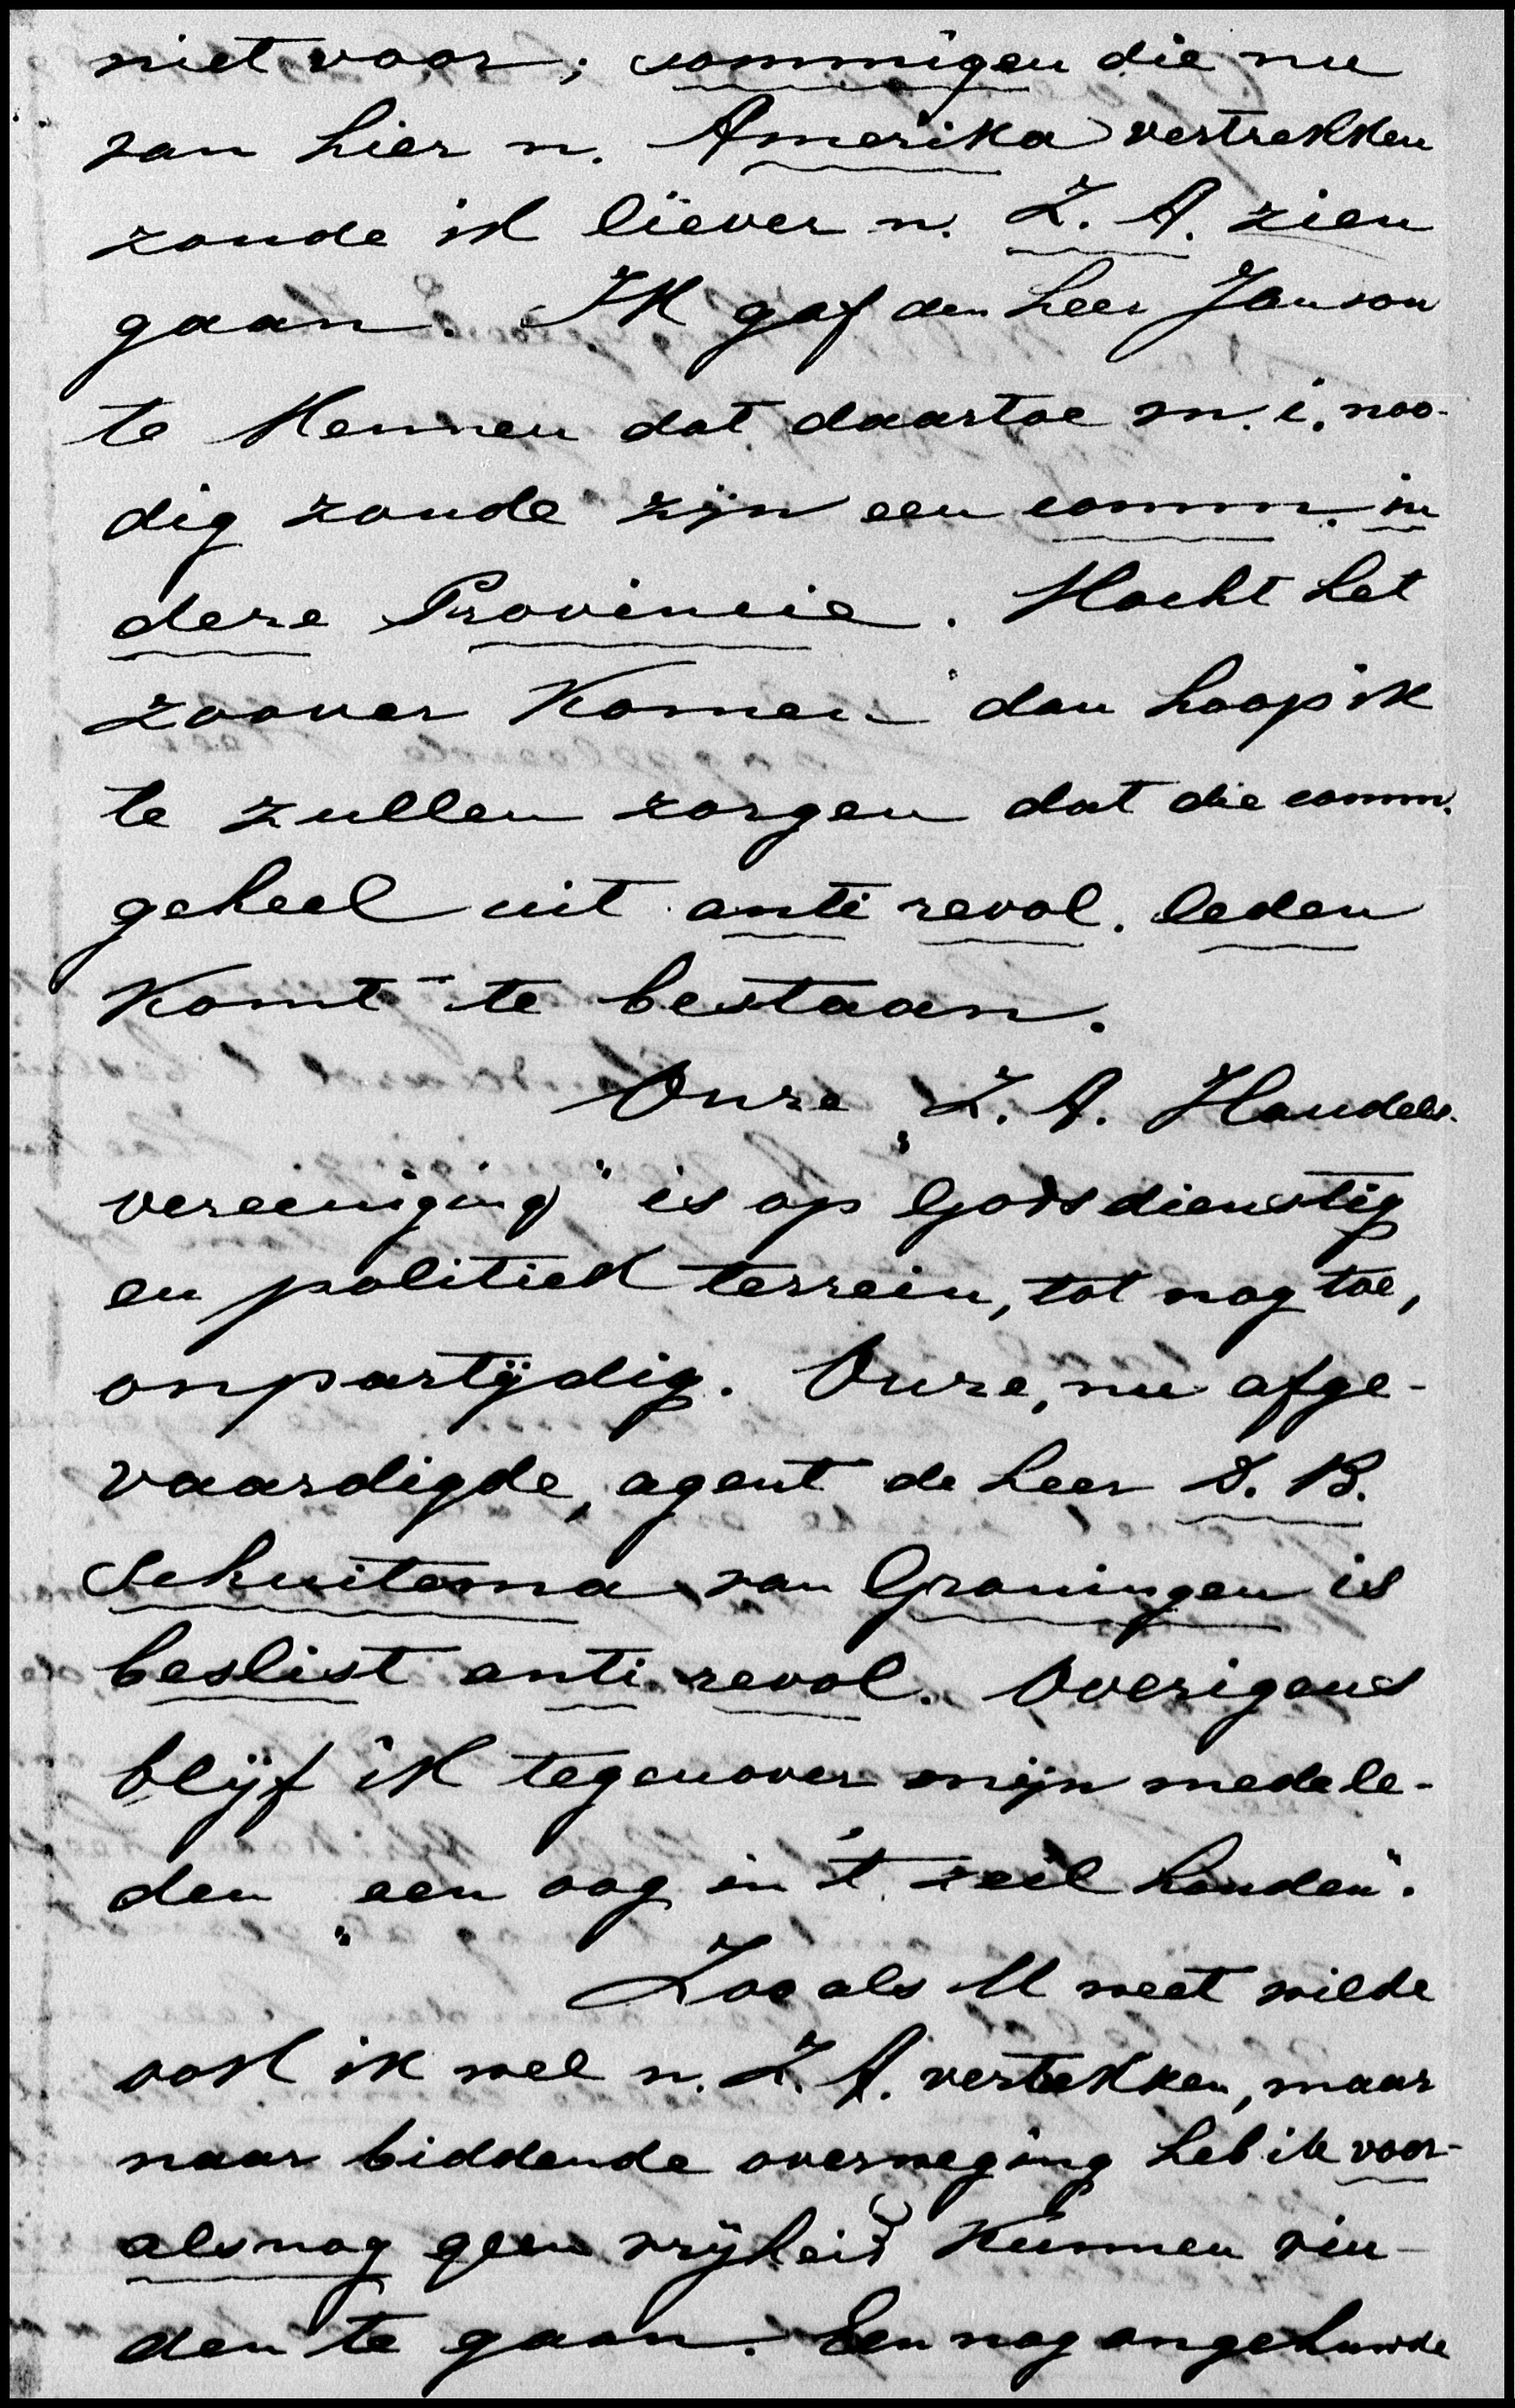 niet voor; sommigen die nu
van hier n. Amerika vertrekken
zoude ik liever n. Z. A. zien
gaan. Ik gaf den heer Janson
te kennen dat daartoe m. i. noo-
dig zoude zijn een comm. in
deze Provincie. Mocht het
zoover komen dan hoop ik
te zullen zorgen dat die comm.
geheel uit anti revol. leden
komt te bestaan.
Onze „Z. A. Handels-
vereeniging" is op Godsdienstig
en politiek terrein, tot nog toe,
onpartijdig. Onze, nu afge-
vaardigde, agent de heer D. B.
Schuitema van Groningen is
beslist anti revol. Overigens
blijf ik tegenover mijn medele-
den „een oog in 't zeil houden".
Zooals U weet wilde
ook ik wel n. Z. A. vertekken, maar
naar biddende overweging heb ik voor-
alsnog geen vrijheid kunnen vin-
den te gaan. Een nog ongehuwde